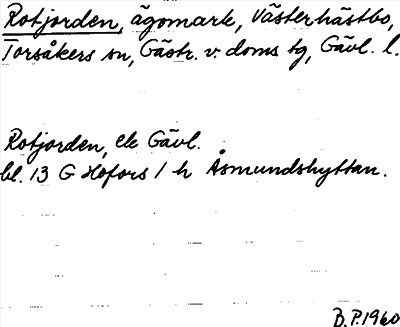 Rotjorden, ägomark, Västerhästbo,
Torsåkers sn, Gästr. v. doms tg, Gävl. l.
Rotjorden, ek Gävl.
bl. 13 G Hofors 1 h Åsmundshyttan.
B.P.1960